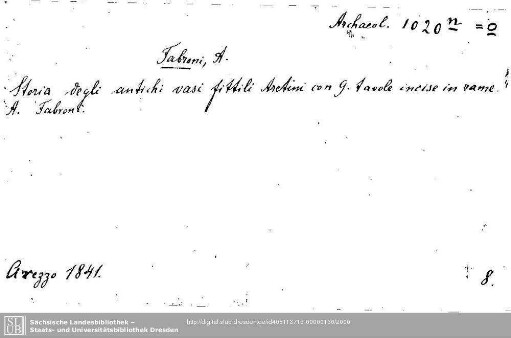 Archaeol. 1020 n = o
Fabroni, A.
Storia degli antichi vasi fittili Aretini con 9. tavole incise in rame.
A. Fabroni.
Arezzo 1841.
8.
Sächsische Landesbibliothek –
Staats- und Universitätsbibliothek Dresden